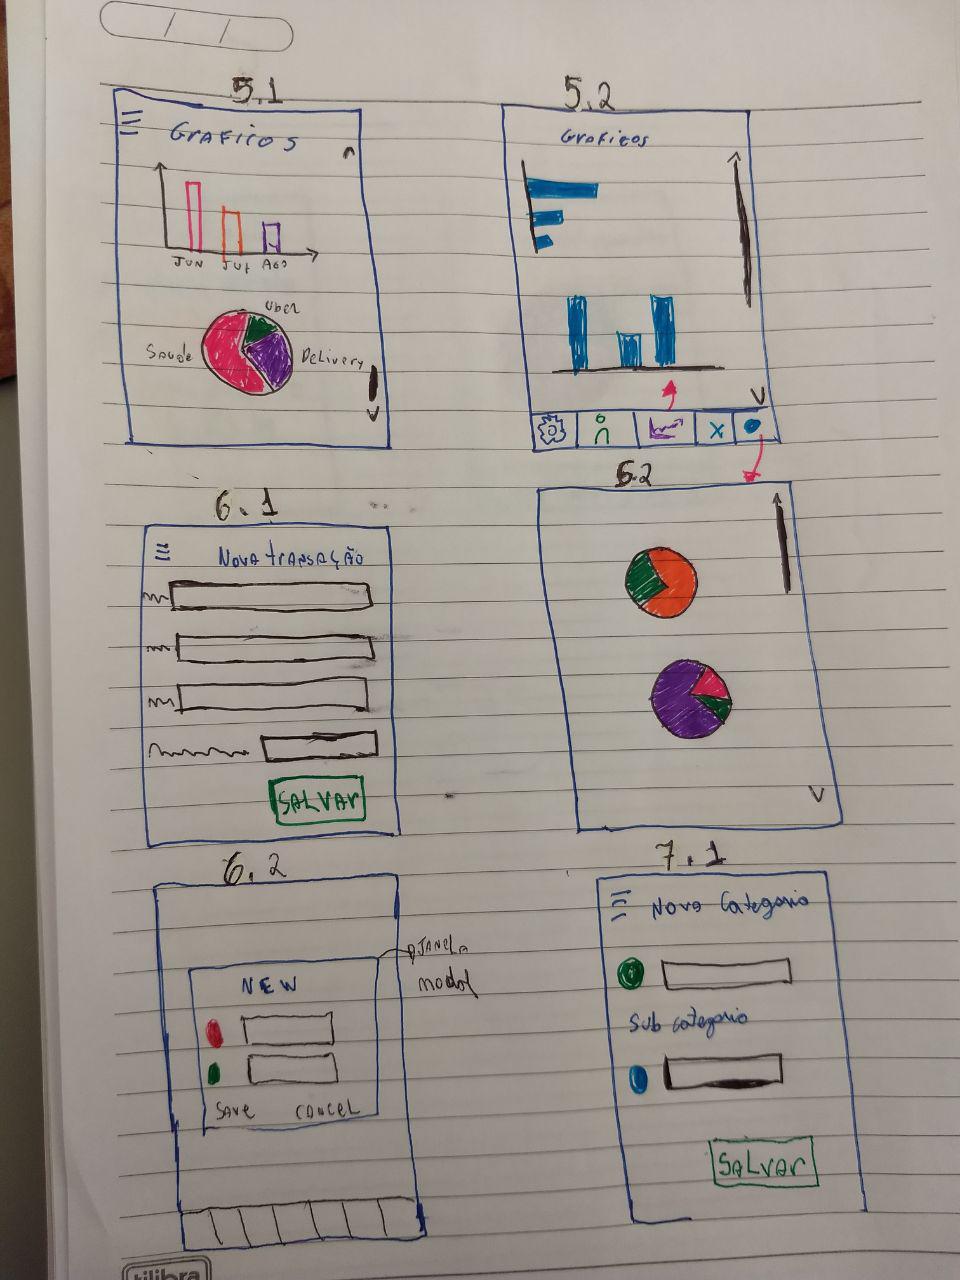 5.1
GRAFICOS
JUN JUL AGO
Uber
Saude
Delivery
5.2
Graficos
6.1
NOVA TRANSAÇÃO
SALVAR
5.2
6.2
JANELA
modal
NEW
SAVE CANCEL
7.1
Nova Categoria
Sub categoria
SALVAR
tilibra